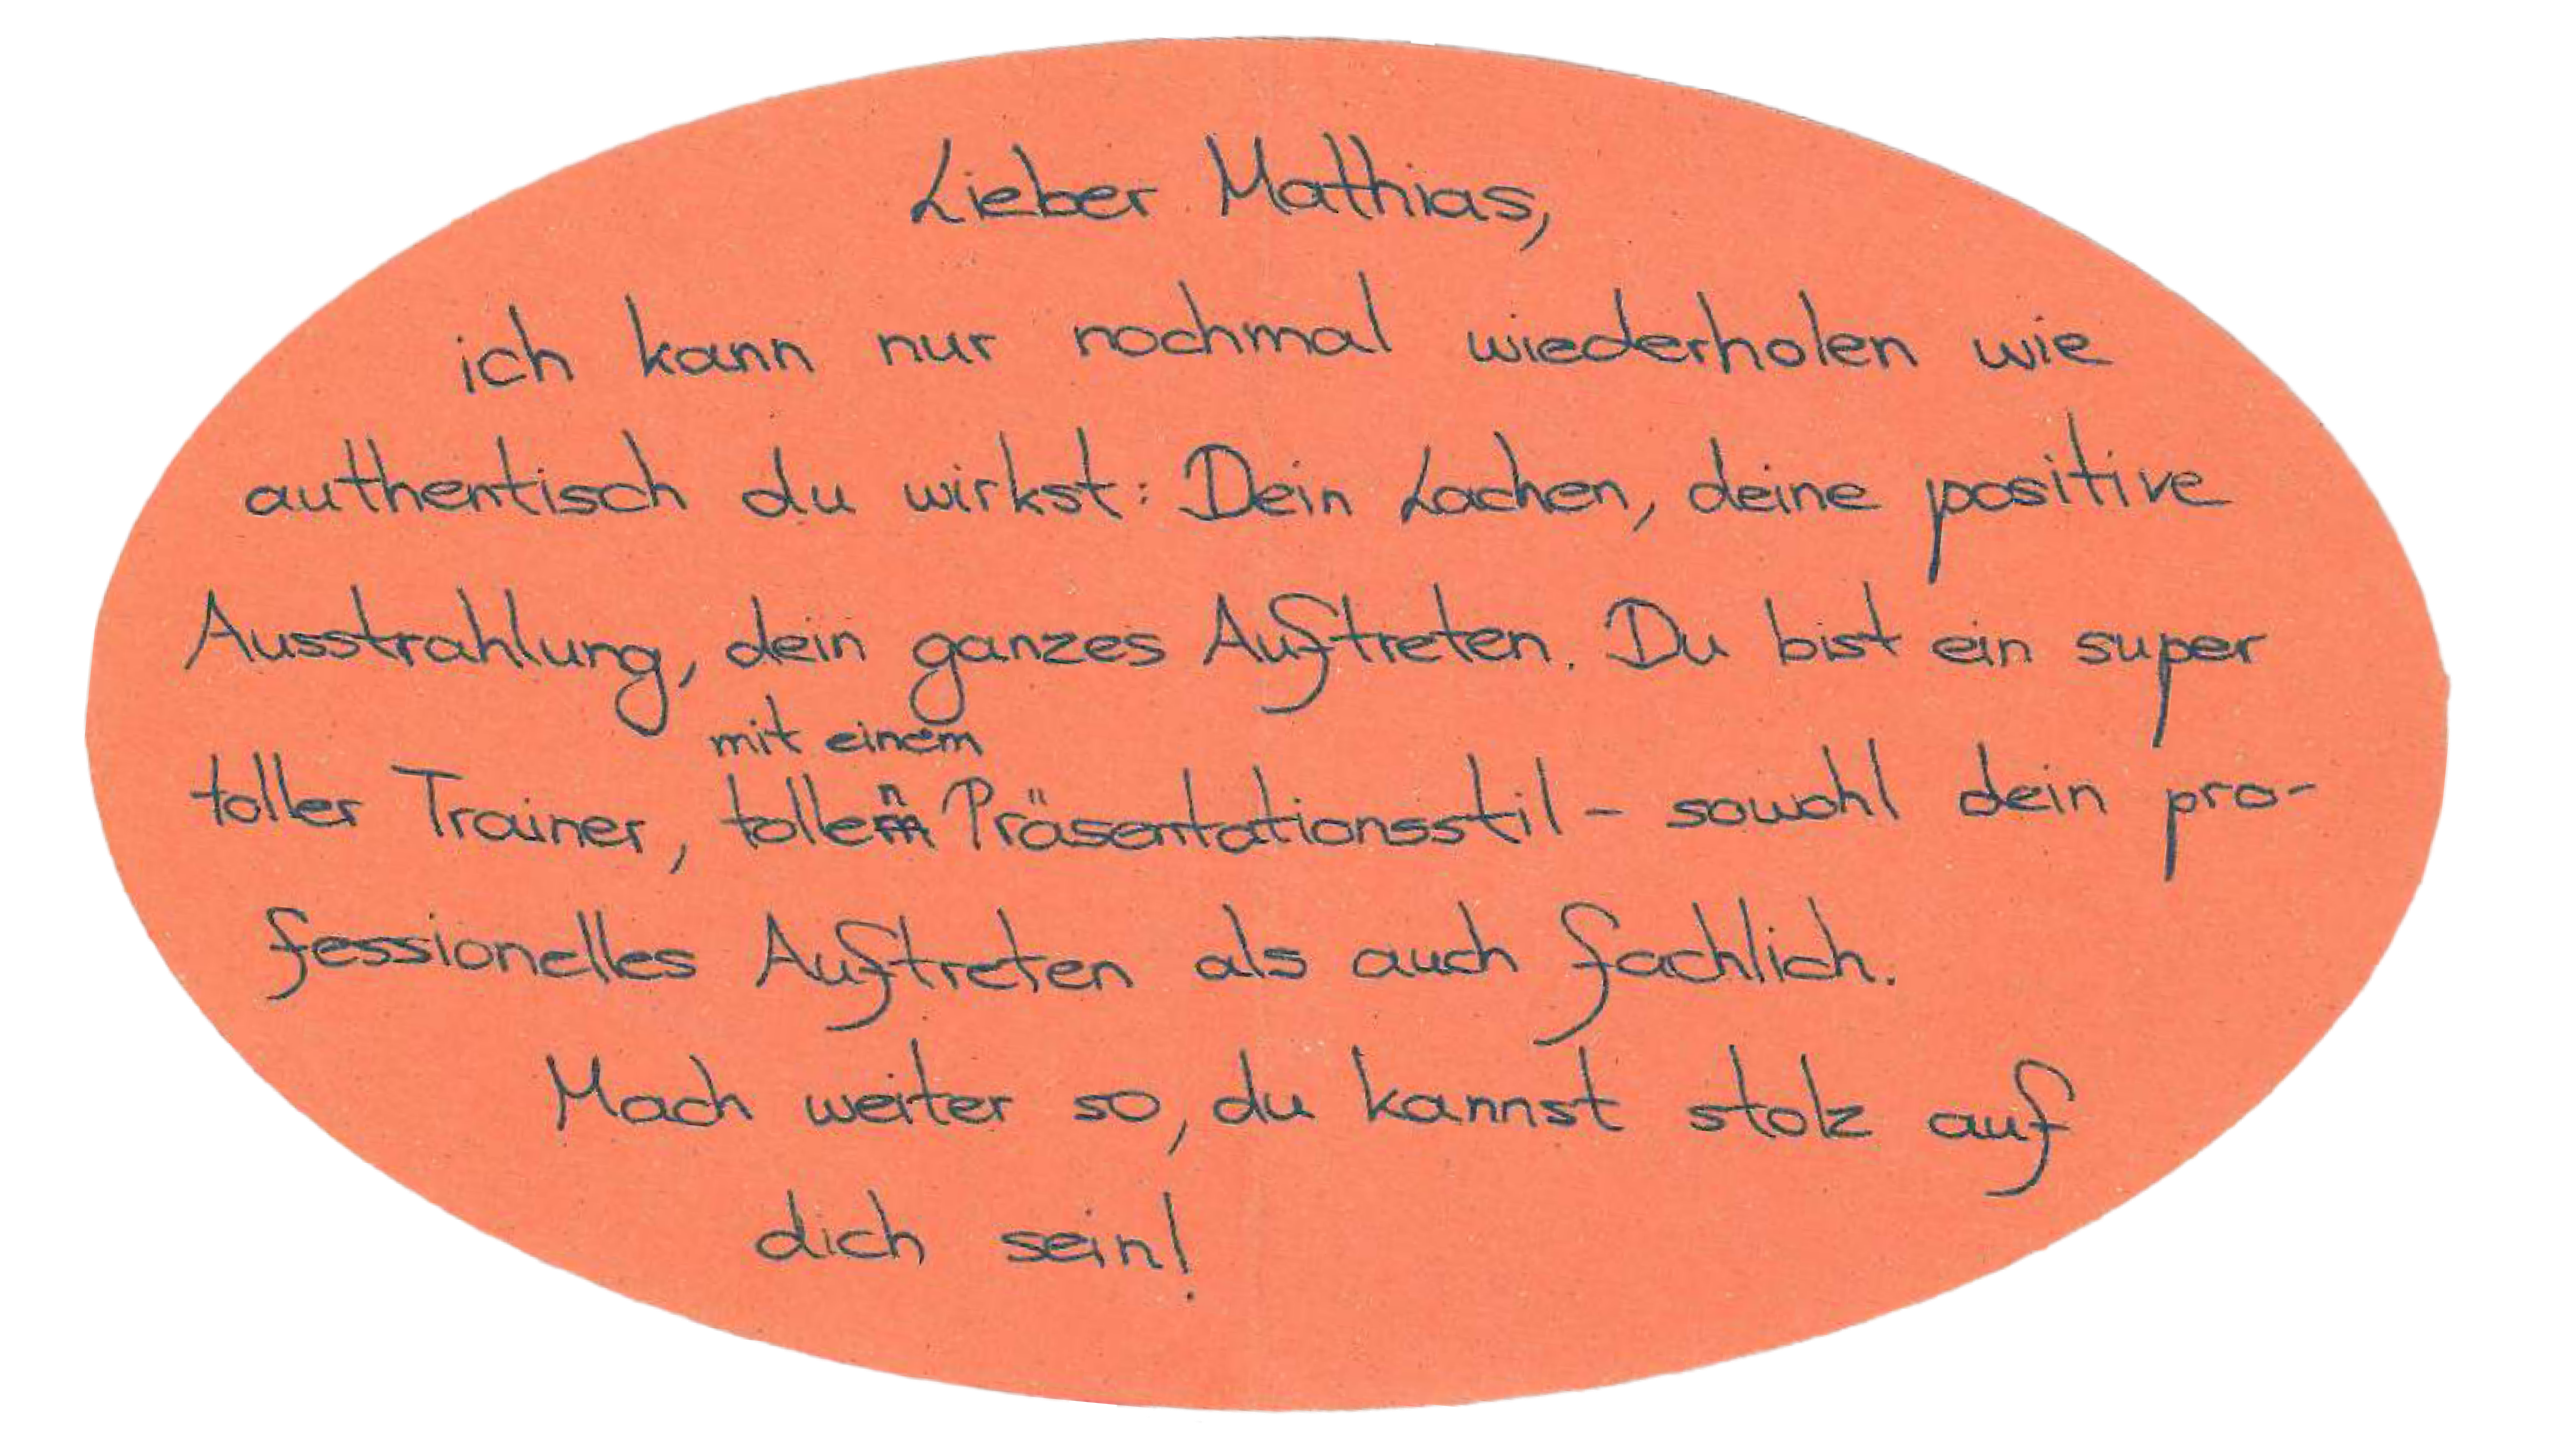 Lieber Mathias,
ich kann nur nochmal wiederholen wie
authentisch du wirkst: Dein Lachen, deine positive
Ausstrahlung, dein ganzes Auftreten. Du bist ein super
mit einem
toller Trainer, tollen Präsentationsstil - sowohl dein pro-
fessionelles Auftreten als auch fachlich.
Mach weiter so, du kannst stolz auf
dich sein!